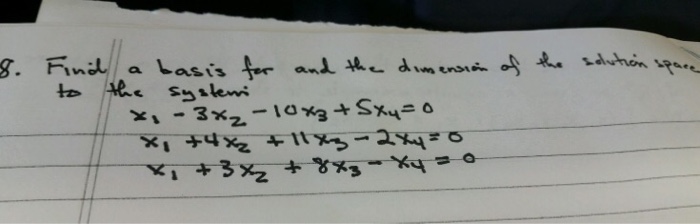 8. Find a basis for and the dimension of the solution space
to the system
x₁ - 3x₂ - 10x₃ + 5x₄ = 0
x₁ + 4x₂ + 11x₃ - 2x₄ = 0
x₁ + 3x₂ + 8x₃ - x₄ = 0